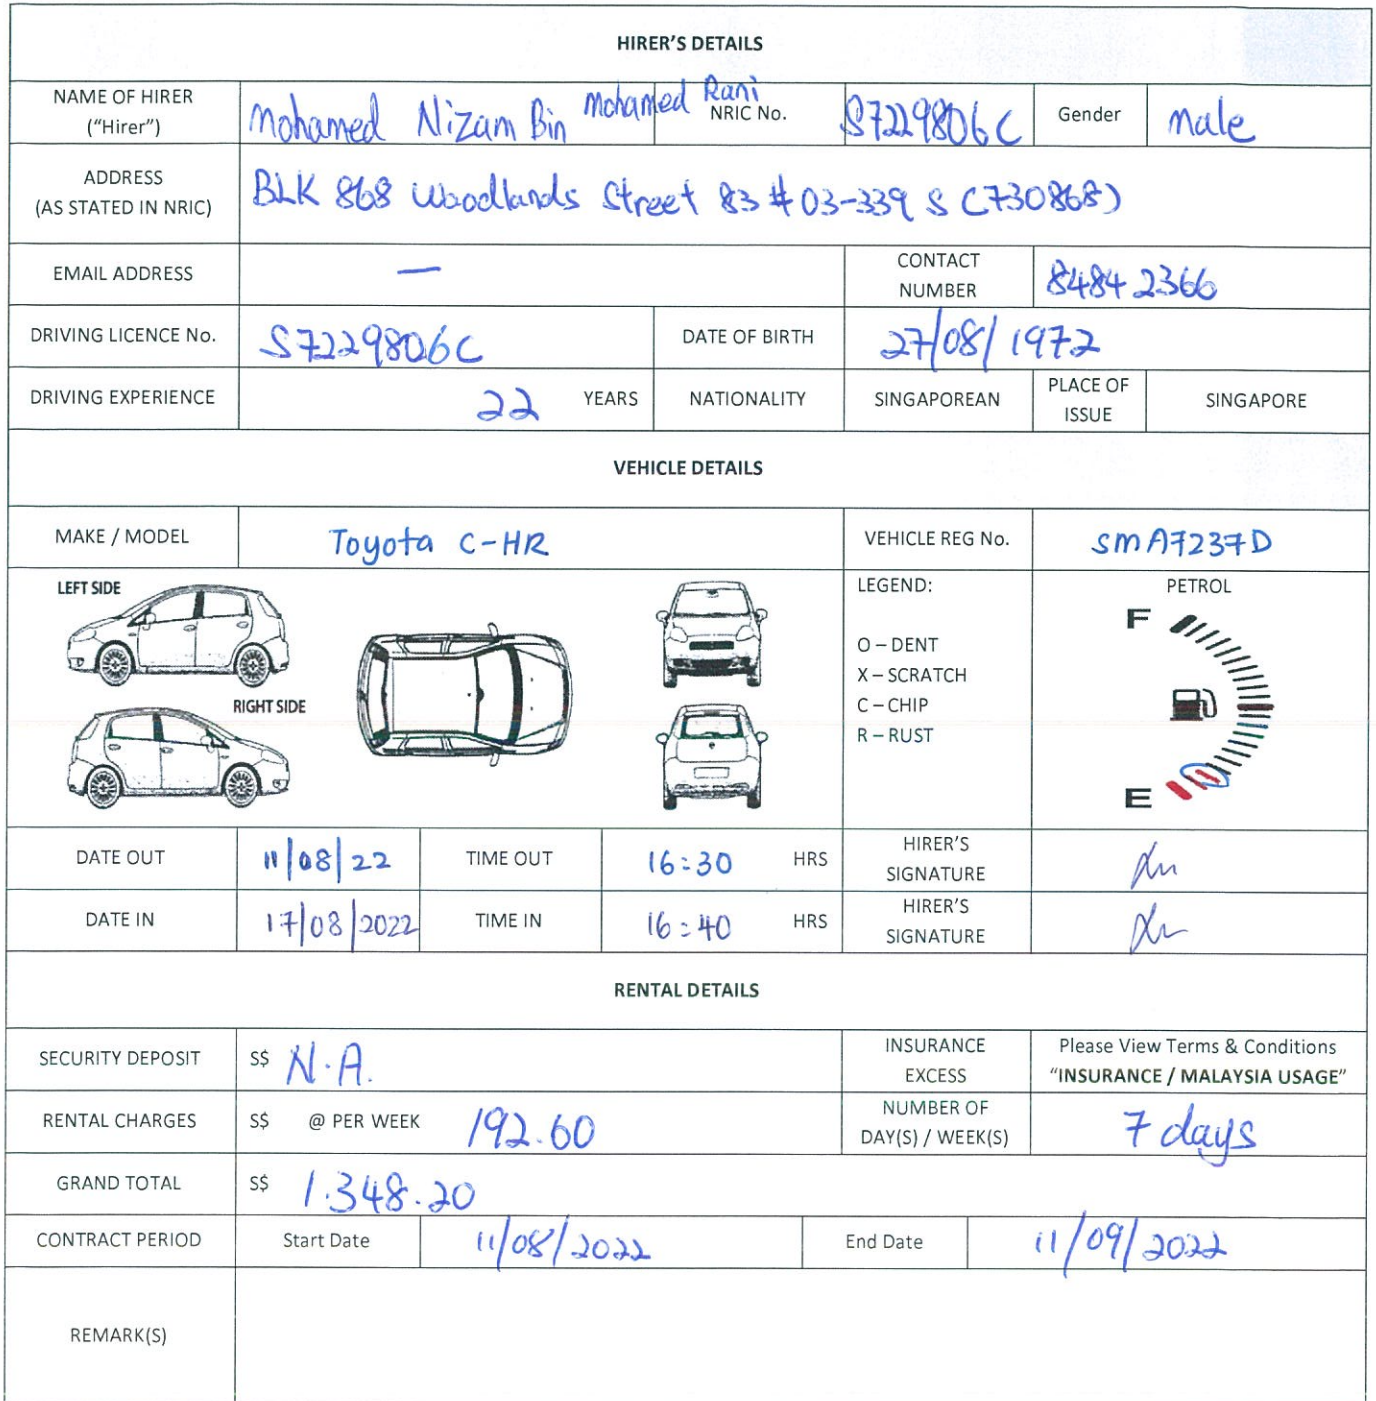 HIRER'S DETAILS
NAME OF HIRER ("Hirer") Mohamed Nizam Bin Mohamed Rani NRIC No. S7229806C Gender Male
ADDRESS (AS STATED IN NRIC) BLK 868 Woodlands Street 83 #03-339 S (730868)
EMAIL ADDRESS — CONTACT NUMBER 8484 2366
DRIVING LICENCE No. S7229806C DATE OF BIRTH 27/08/1972
DRIVING EXPERIENCE 22 YEARS NATIONALITY SINGAPOREAN PLACE OF ISSUE SINGAPORE
VEHICLE DETAILS
MAKE / MODEL Toyota C-HR VEHICLE REG No. SMA7237D
LEFT SIDE
RIGHT SIDE
LEGEND:
O – DENT
X – SCRATCH
C – CHIP
R – RUST
PETROL
F
E
DATE OUT 11/08/22 TIME OUT 16:30 HRS HIRER'S SIGNATURE
DATE IN 17/08/2022 TIME IN 16:40 HRS HIRER'S SIGNATURE
RENTAL DETAILS
SECURITY DEPOSIT S$ N.A. INSURANCE EXCESS Please View Terms & Conditions "INSURANCE / MALAYSIA USAGE"
RENTAL CHARGES S$ @ PER WEEK 192.60 NUMBER OF DAY(S) / WEEK(S) 7 days
GRAND TOTAL S$ 1.348.20
CONTRACT PERIOD Start Date 11/08/2022 End Date 11/09/2022
REMARK(S)